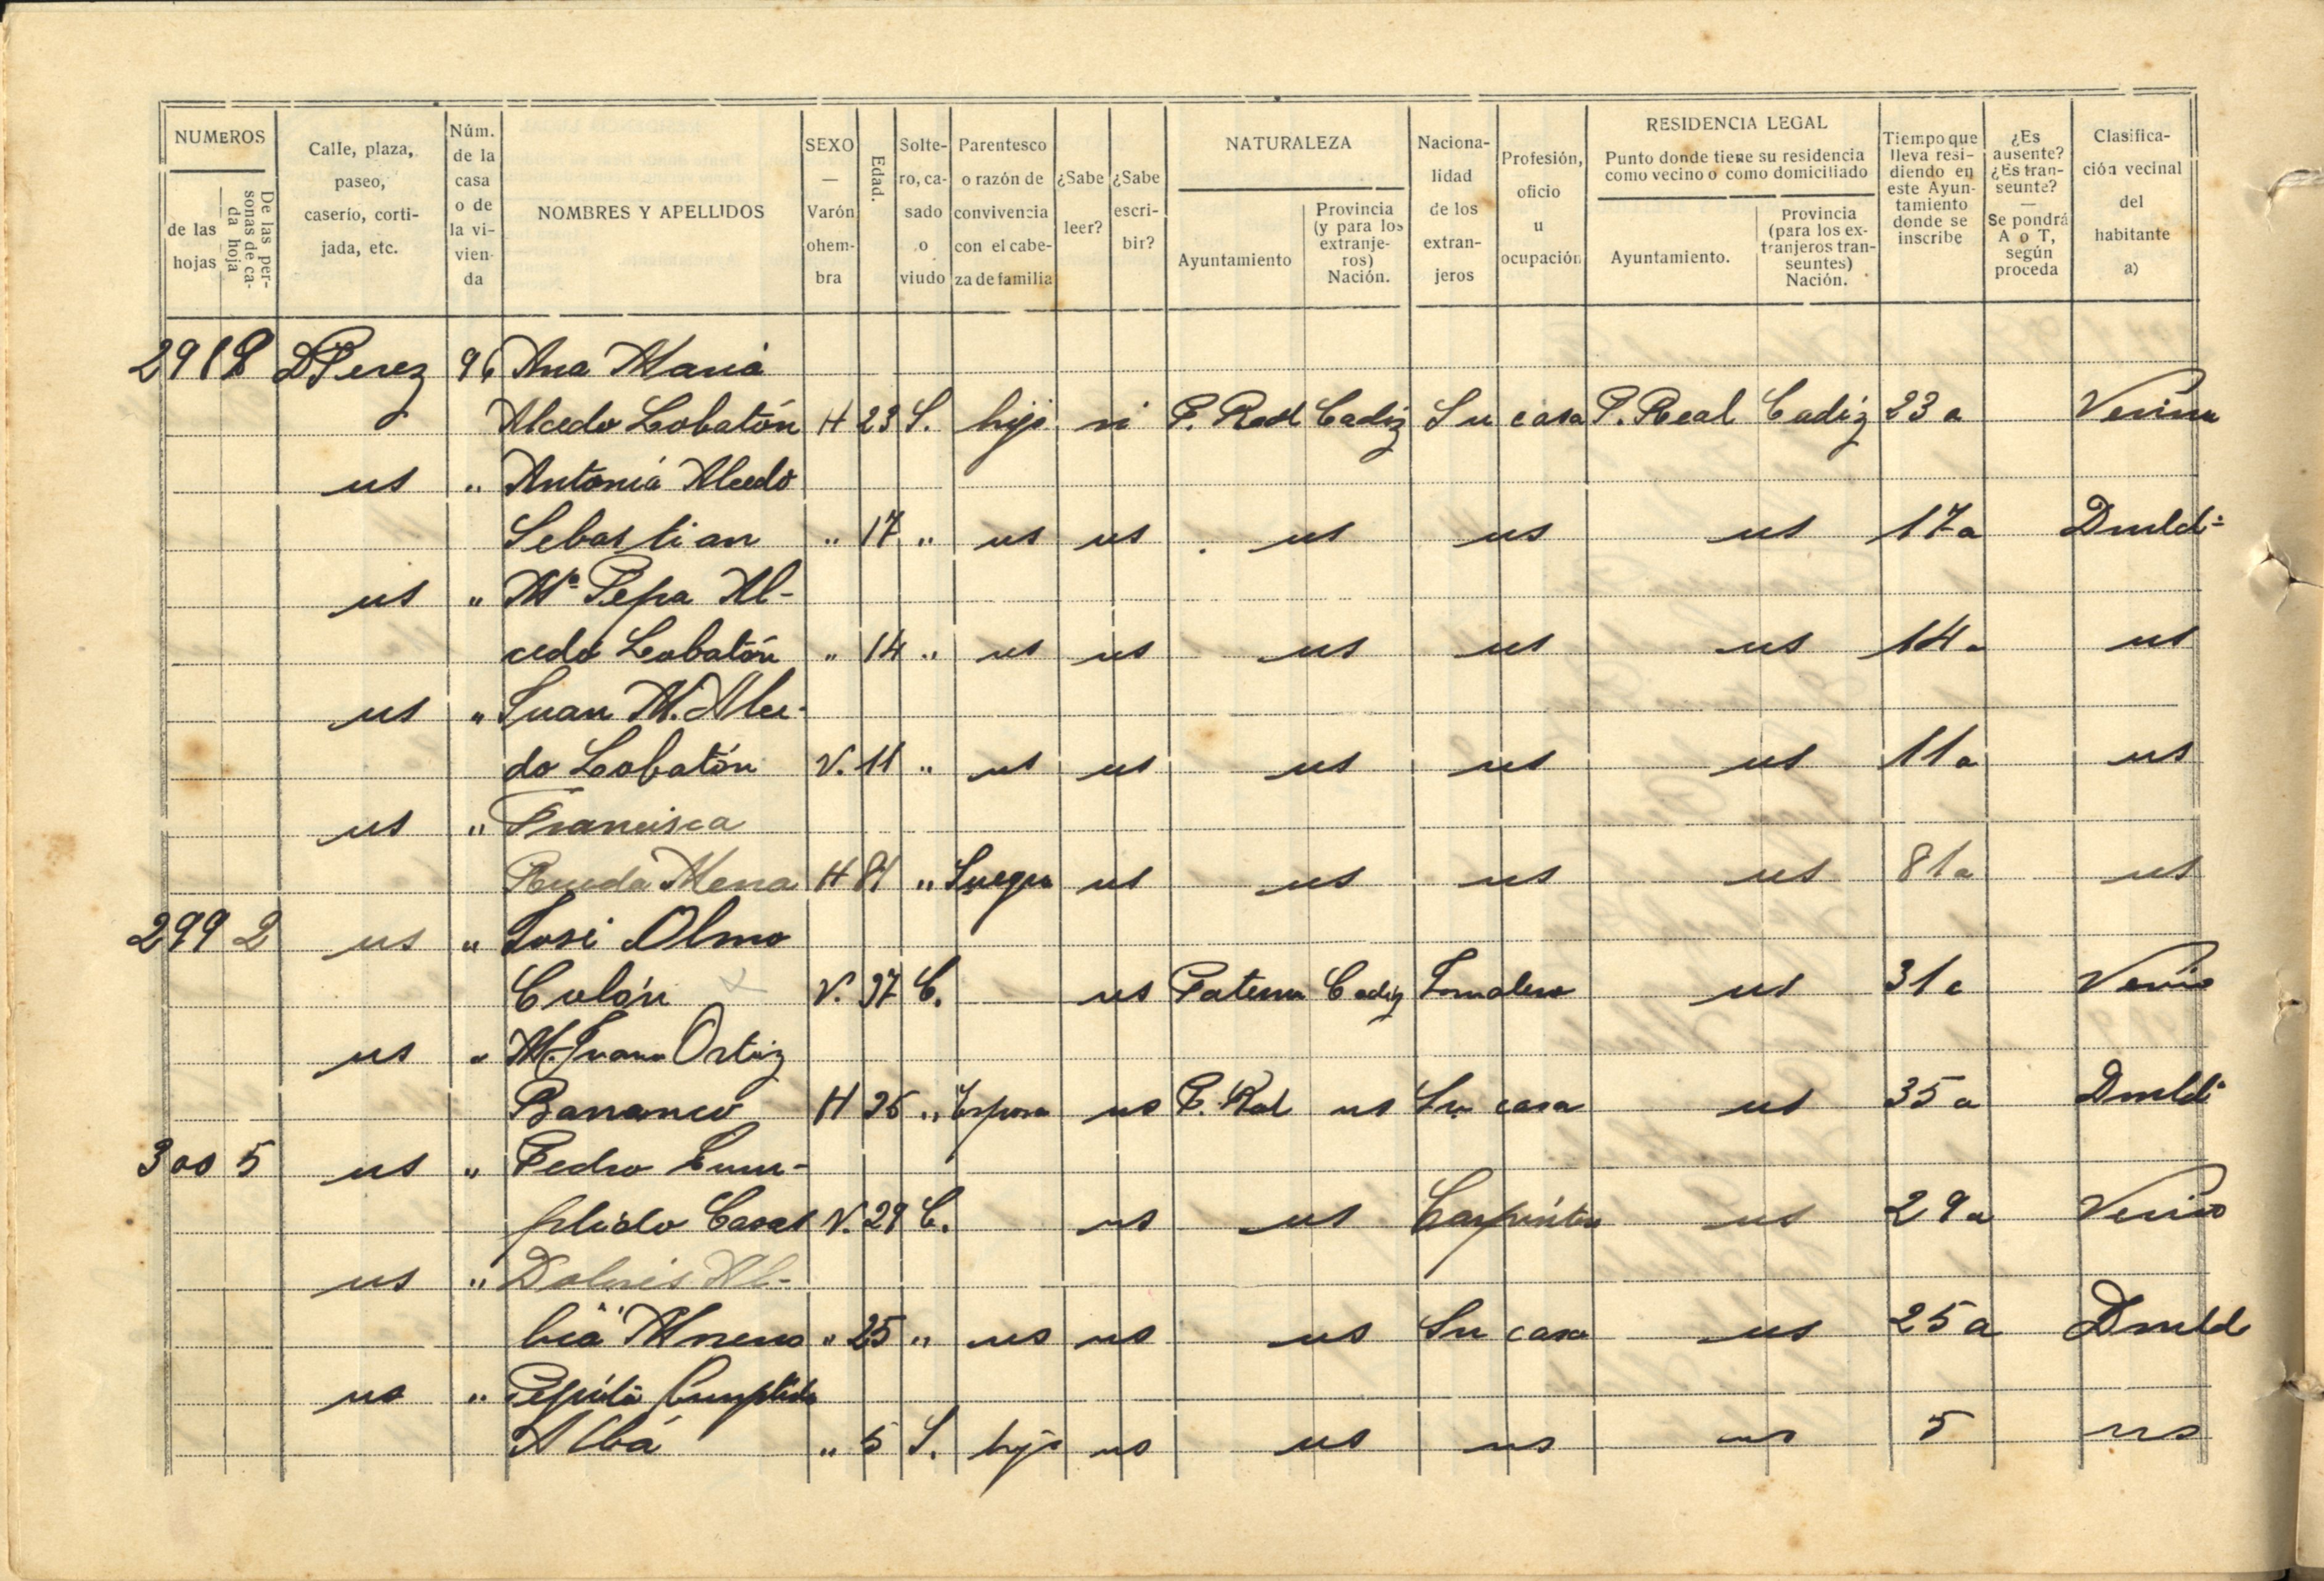 NUMEROS
de las hojas
De las personas de cada hoja
Calle, plaza, paseo, caserío, cortijada, etc.
Núm. de la casa o de la vivienda
NOMBRES Y APELLIDOS
SEXO — Varón o hembra
Edad.
Soltero, casado o viudo
Parentesco o razón de convivencia con el cabeza de familia
¿Sabe leer?
¿Sabe escribir?
NATURALEZA
Ayuntamiento
Provincia (y para los extranjeros) Nación.
Nacionalidad de los extranjeros
Profesión, oficio u ocupación
RESIDENCIA LEGAL
Punto donde tiene su residencia como vecino o como domiciliado
Ayuntamiento.
Provincia (para los extranjeros transeuntes) Nación.
Tiempo que lleva residiendo en este Ayuntamiento donde se inscribe
¿Es ausente? ¿Es transeunte? — Se pondrá A o T, según proceda
Clasificación vecinal del habitante a)
298 D Perez 96 Ana Maria
Alcedo Lobatón H 23 S. hija si P. Real Cadiz Su casa P. Real Cadiz 23 a Vecina
us " Antonia Alcedo
Sebastian " 17 " us us us us us 17 a
us " Mª Pepa Al-
cedo Lobatón " 14 " us us us us us 14 a us
us " Juan M. Alce-
do Lobatón V. 11 " us us us us us 11 a us
us " Francisca
Rueda Mena H 81 " Suegra us us us us 81 a us
299 2 us " José Olmo
Colón V. 37 C. us Paterna Cadiz Jornalero us 31 a Vecino
us " M. Juana Ortiz
Barranco H 35 " Esposa us P. Real us Su casa us 35 a
300 5 us " Pedro Cum-
plido Casas V. 29 C. us us Carpintero us 29 a Vecino
us " Dolores Al-
bá Moreno " 25 " us us us Su casa us 25 a
us " Pepita Cumplido
Albá " 5 S. hija us us us us 5 us